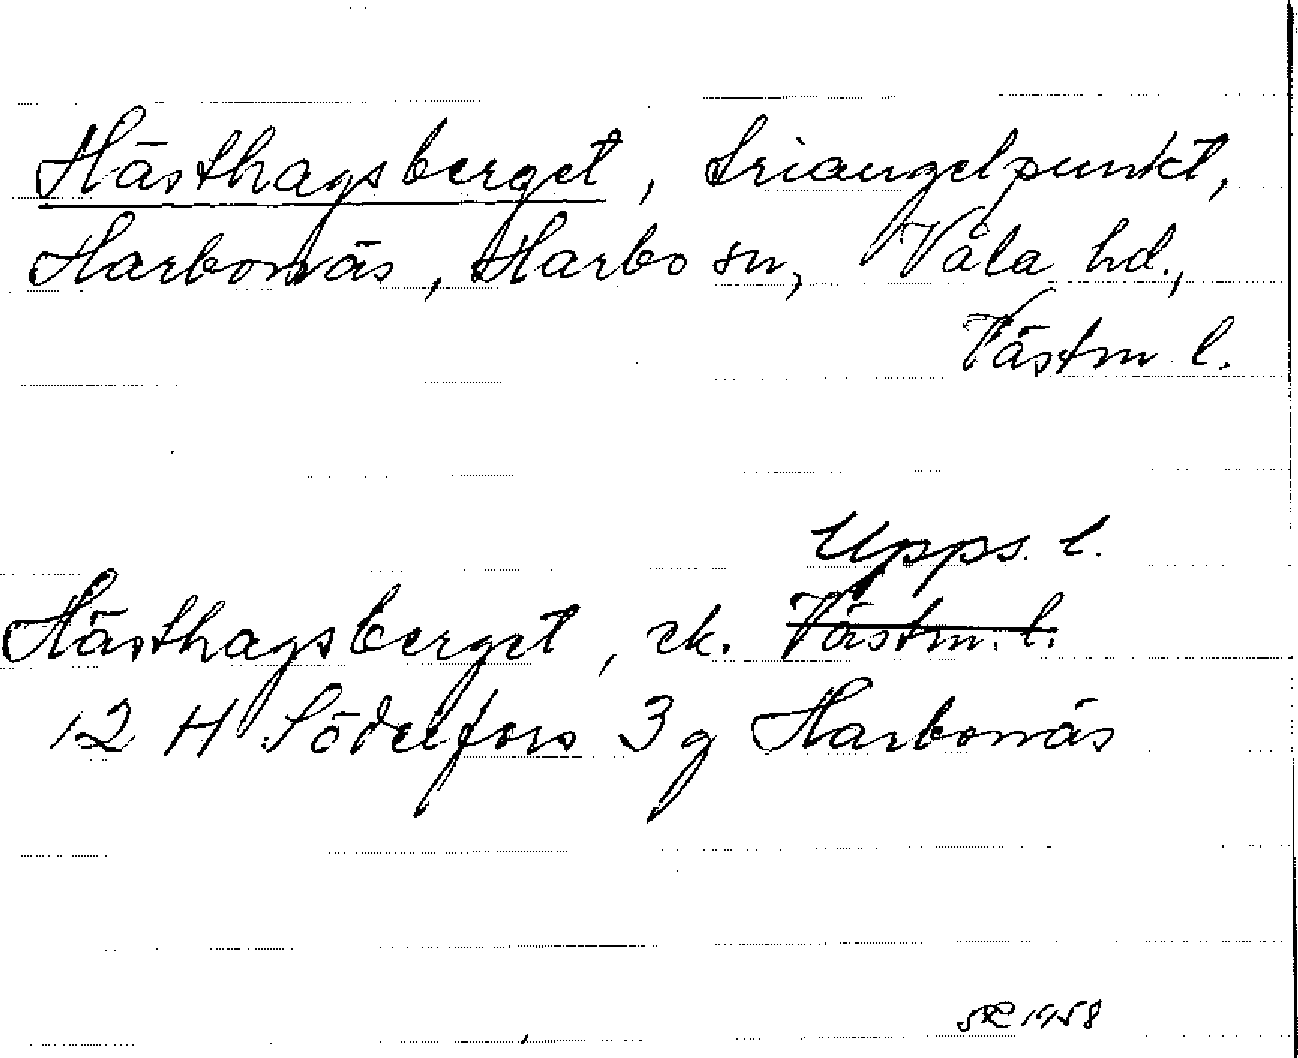 Hästhagsberget, triangelpunkt,
Harbonäs, Harbo sn, Våla hd.,
Västm l.
Upps. l.
Hästhagsberget, ek. Västm. l.
12 H Söderfors 3g Harbonäs
1958